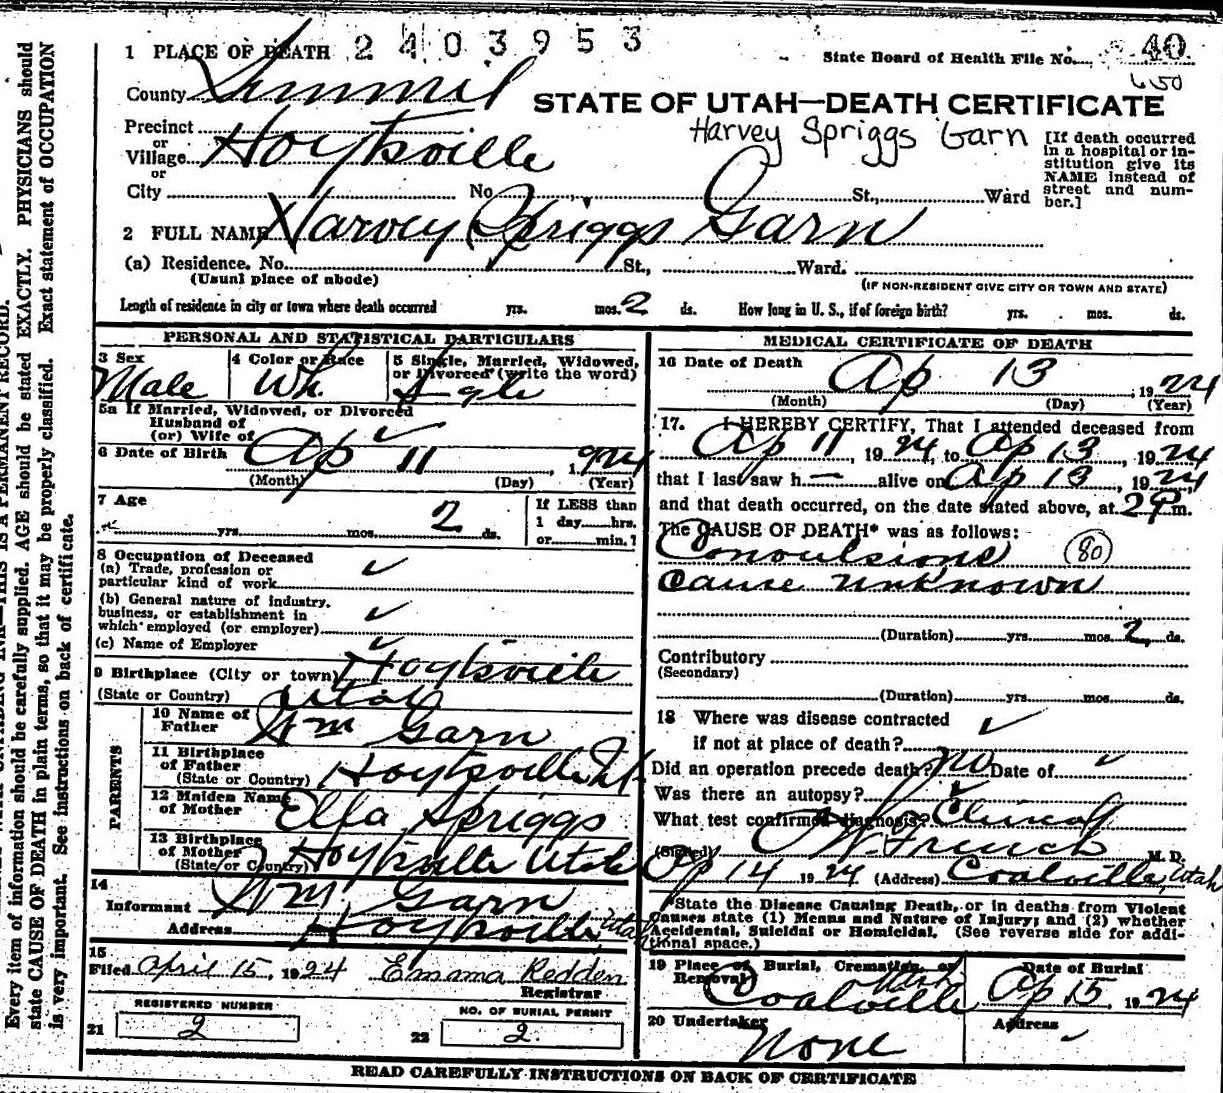 1 PLACE OF DEATH 2403953
State Board of Health File No. 40
650
County Summit
STATE OF UTAH—DEATH CERTIFICATE
Harvey Spriggs Garn
Precinct
or
Village Hoytsville
or
City No. St., Ward
[If death occurred
in a hospital or in-
stitution give its
NAME instead of
street and num-
ber.]
2 FULL NAME Harvey Spriggs Garn
(a) Residence. No. St., Ward.
(Usual place of abode) (IF NON-RESIDENT GIVE CITY OR TOWN AND STATE)
Length of residence in city or town where death occurred yrs. mos. 2 ds. How long in U. S., if of foreign birth? yrs. mos. ds.
PERSONAL AND STATISTICAL PARTICULARS
3 Sex Male
4 Color or Race Wh.
5 Single, Married, Widowed,
or Divorced (write the word)
Single
5a If Married, Widowed, or Divorced
Husband of
(or) Wife of
6 Date of Birth Ap 11, 1924
(Month) (Day) (Year)
7 Age
yrs. mos. 2 ds.
If LESS than
1 day hrs.
or min.?
8 Occupation of Deceased
(a) Trade, profession or
particular kind of work
(b) General nature of industry,
business, or establishment in
which employed (or employer)
(c) Name of Employer
9 Birthplace (City or town) Hoytsville
(State or Country) Utah
PARENTS
10 Name of
Father Wm Garn
11 Birthplace
of Father
(State or Country) Hoytsville Ut.
12 Maiden Name
of Mother Ella Spriggs
13 Birthplace
of Mother
(State or Country) Hoytsville Utah
14
Informant Wm Garn
Address Hoytsville Utah
15
Filed April 15, 1924 Emma Redden
Registrar
REGISTERED NUMBER
21 2
NO. OF BURIAL PERMIT
22 2.
MEDICAL CERTIFICATE OF DEATH
16 Date of Death
Ap 13, 1924
(Month) (Day) (Year)
17. I HEREBY CERTIFY, That I attended deceased from
Ap 11, 1924, to Ap 13, 1924
that I last saw h— alive on Ap 13, 1924,
and that death occurred, on the date stated above, at 2 P.m.
The CAUSE OF DEATH* was as follows:
Convulsions (80)
Cause unknown
(Duration) yrs. mos. 2 ds.
Contributory
(Secondary)
(Duration) yrs. mos. ds.
18 Where was disease contracted
if not at place of death?
Did an operation precede death? no Date of
Was there an autopsy?
What test confirmed diagnosis? Clinical
(Signed) French M. D.
Ap 14 1924 (Address) Coalville, Utah
*State the Disease Causing Death, or in deaths from Violent
Causes state (1) Means and Nature of Injury; and (2) whether
Accidental, Suicidal or Homicidal. (See reverse side for addi-
tional space.)
19 Place of Burial, Cremation, or
Removal
Coalville Utah
Date of Burial
Ap 15, 1924
20 Undertaker
none
Address
READ CAREFULLY INSTRUCTIONS ON BACK OF CERTIFICATE
THIS IS A PERMANENT RECORD.
Every item of information should be carefully supplied. AGE should be stated EXACTLY. PHYSICIANS should
state CAUSE OF DEATH in plain terms, so that it may be properly classified. Exact statement of OCCUPATION
is very important. See instructions on back of certificate.